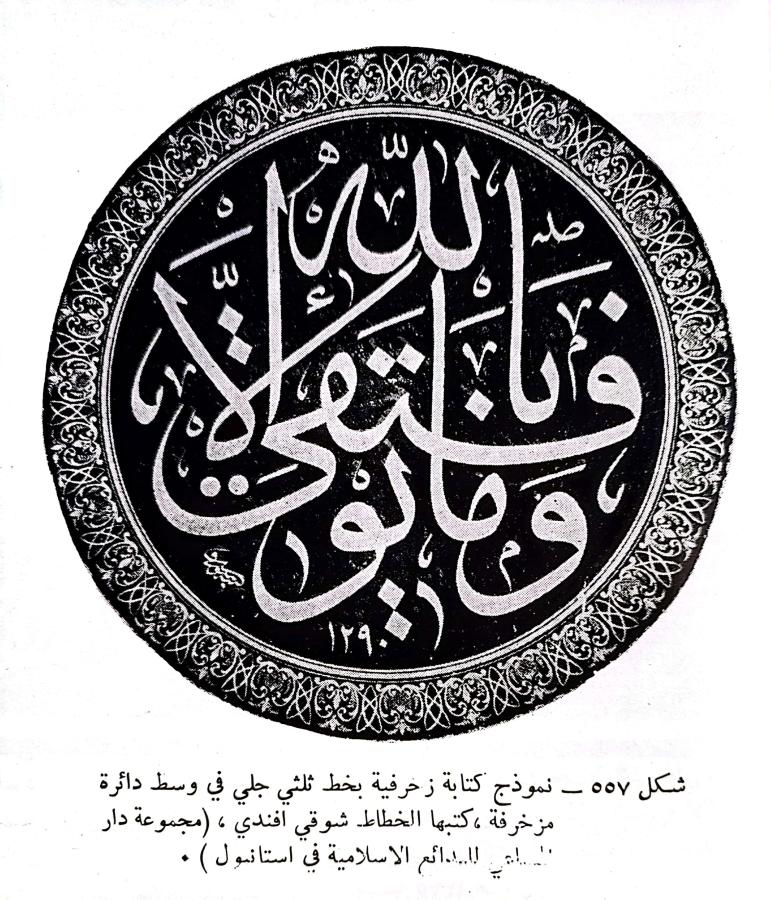 وما توفيقي إلا بالله
١٢٩٠
شكل ٥٥٧ — نموذج كتابة زخرفية بخط ثلثي جلي في وسط دائرة
مزخرفة ، كتبها الخطاط شوقي افندي ، (مجموعة دار
للبدائع الاسلامية في استانبول ) ٠